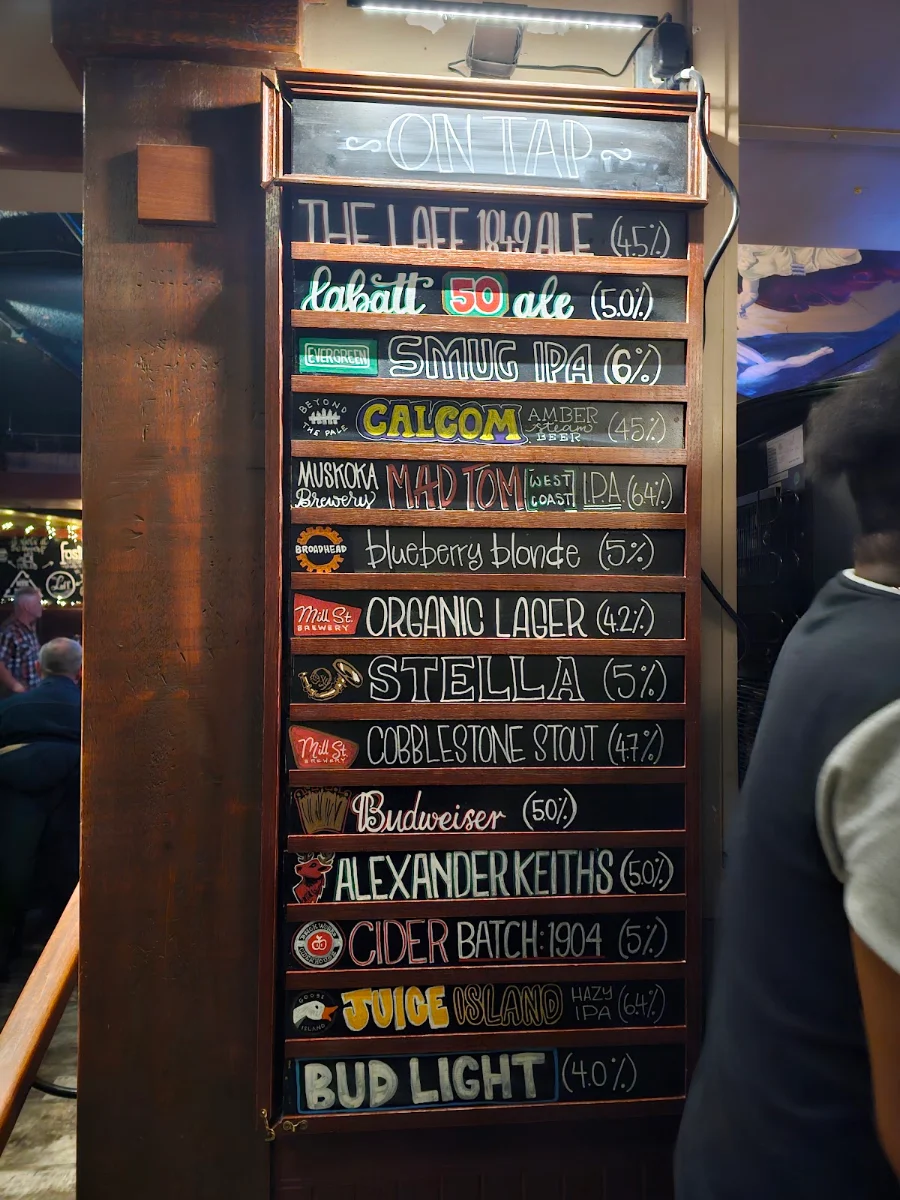 ON TAP
THE LAFF 1849 ALE (4.5%)
labatt 50 ale (5.0%)
EVERGREEN SMUG IPA (6%)
BEYOND THE PALE CALCOM AMBER steam BEER (4.5%)
MUSKOKA Brewery MAD TOM WEST COAST I.P.A. (6.4%)
BROADHEAD blueberry blonde (5%)
Mill St. BREWERY ORGANIC LAGER (4.2%)
STELLA (5%)
Mill St. BREWERY COBBLESTONE STOUT (4.7%)
Budweiser (5.0%)
ALEXANDER KEITHS (5.0%)
CIDER BATCH: 1904 (5%)
GOOSE ISLAND JUICE ISLAND HAZY IPA (6.4%)
BUD LIGHT (4.0%)